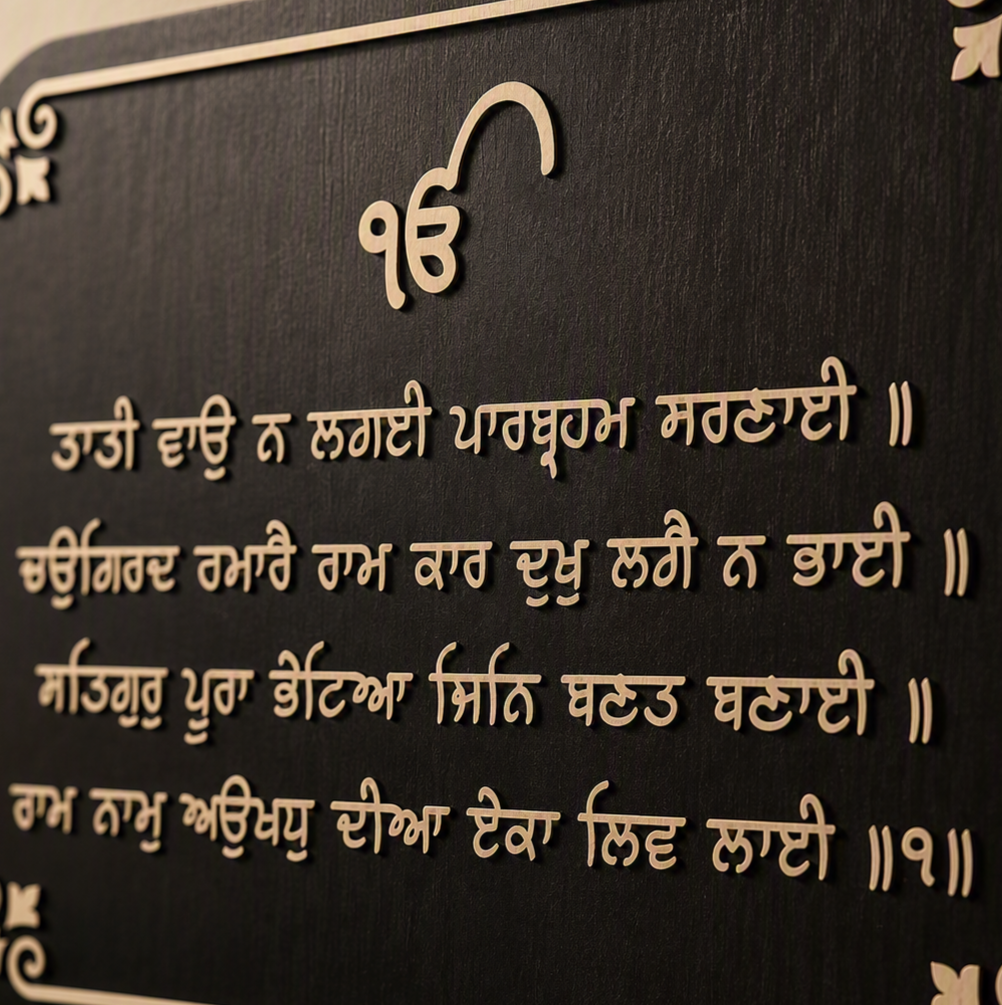 ੴ
ਤਾਤੀ ਵਾਉ ਨ ਲਗਈ ਪਾਰਬ੍ਰਹਮ ਸਰਣਾਈ ॥
ਚਉਗਿਰਦ ਰਮਾਰੈ ਰਾਮ ਕਾਰ ਦੁਖੁ ਲਗੈ ਨ ਭਾਈ ॥
ਸਤਿਗੁਰੁ ਪੂਰਾ ਭੇਟਿਆ ਜਿਨਿ ਬਣਤ ਬਣਾਈ ॥
ਰਾਮ ਨਾਮੁ ਅਉਖਧੁ ਦੀਆ ਏਕਾ ਲਿਵ ਲਾਈ ॥੧॥